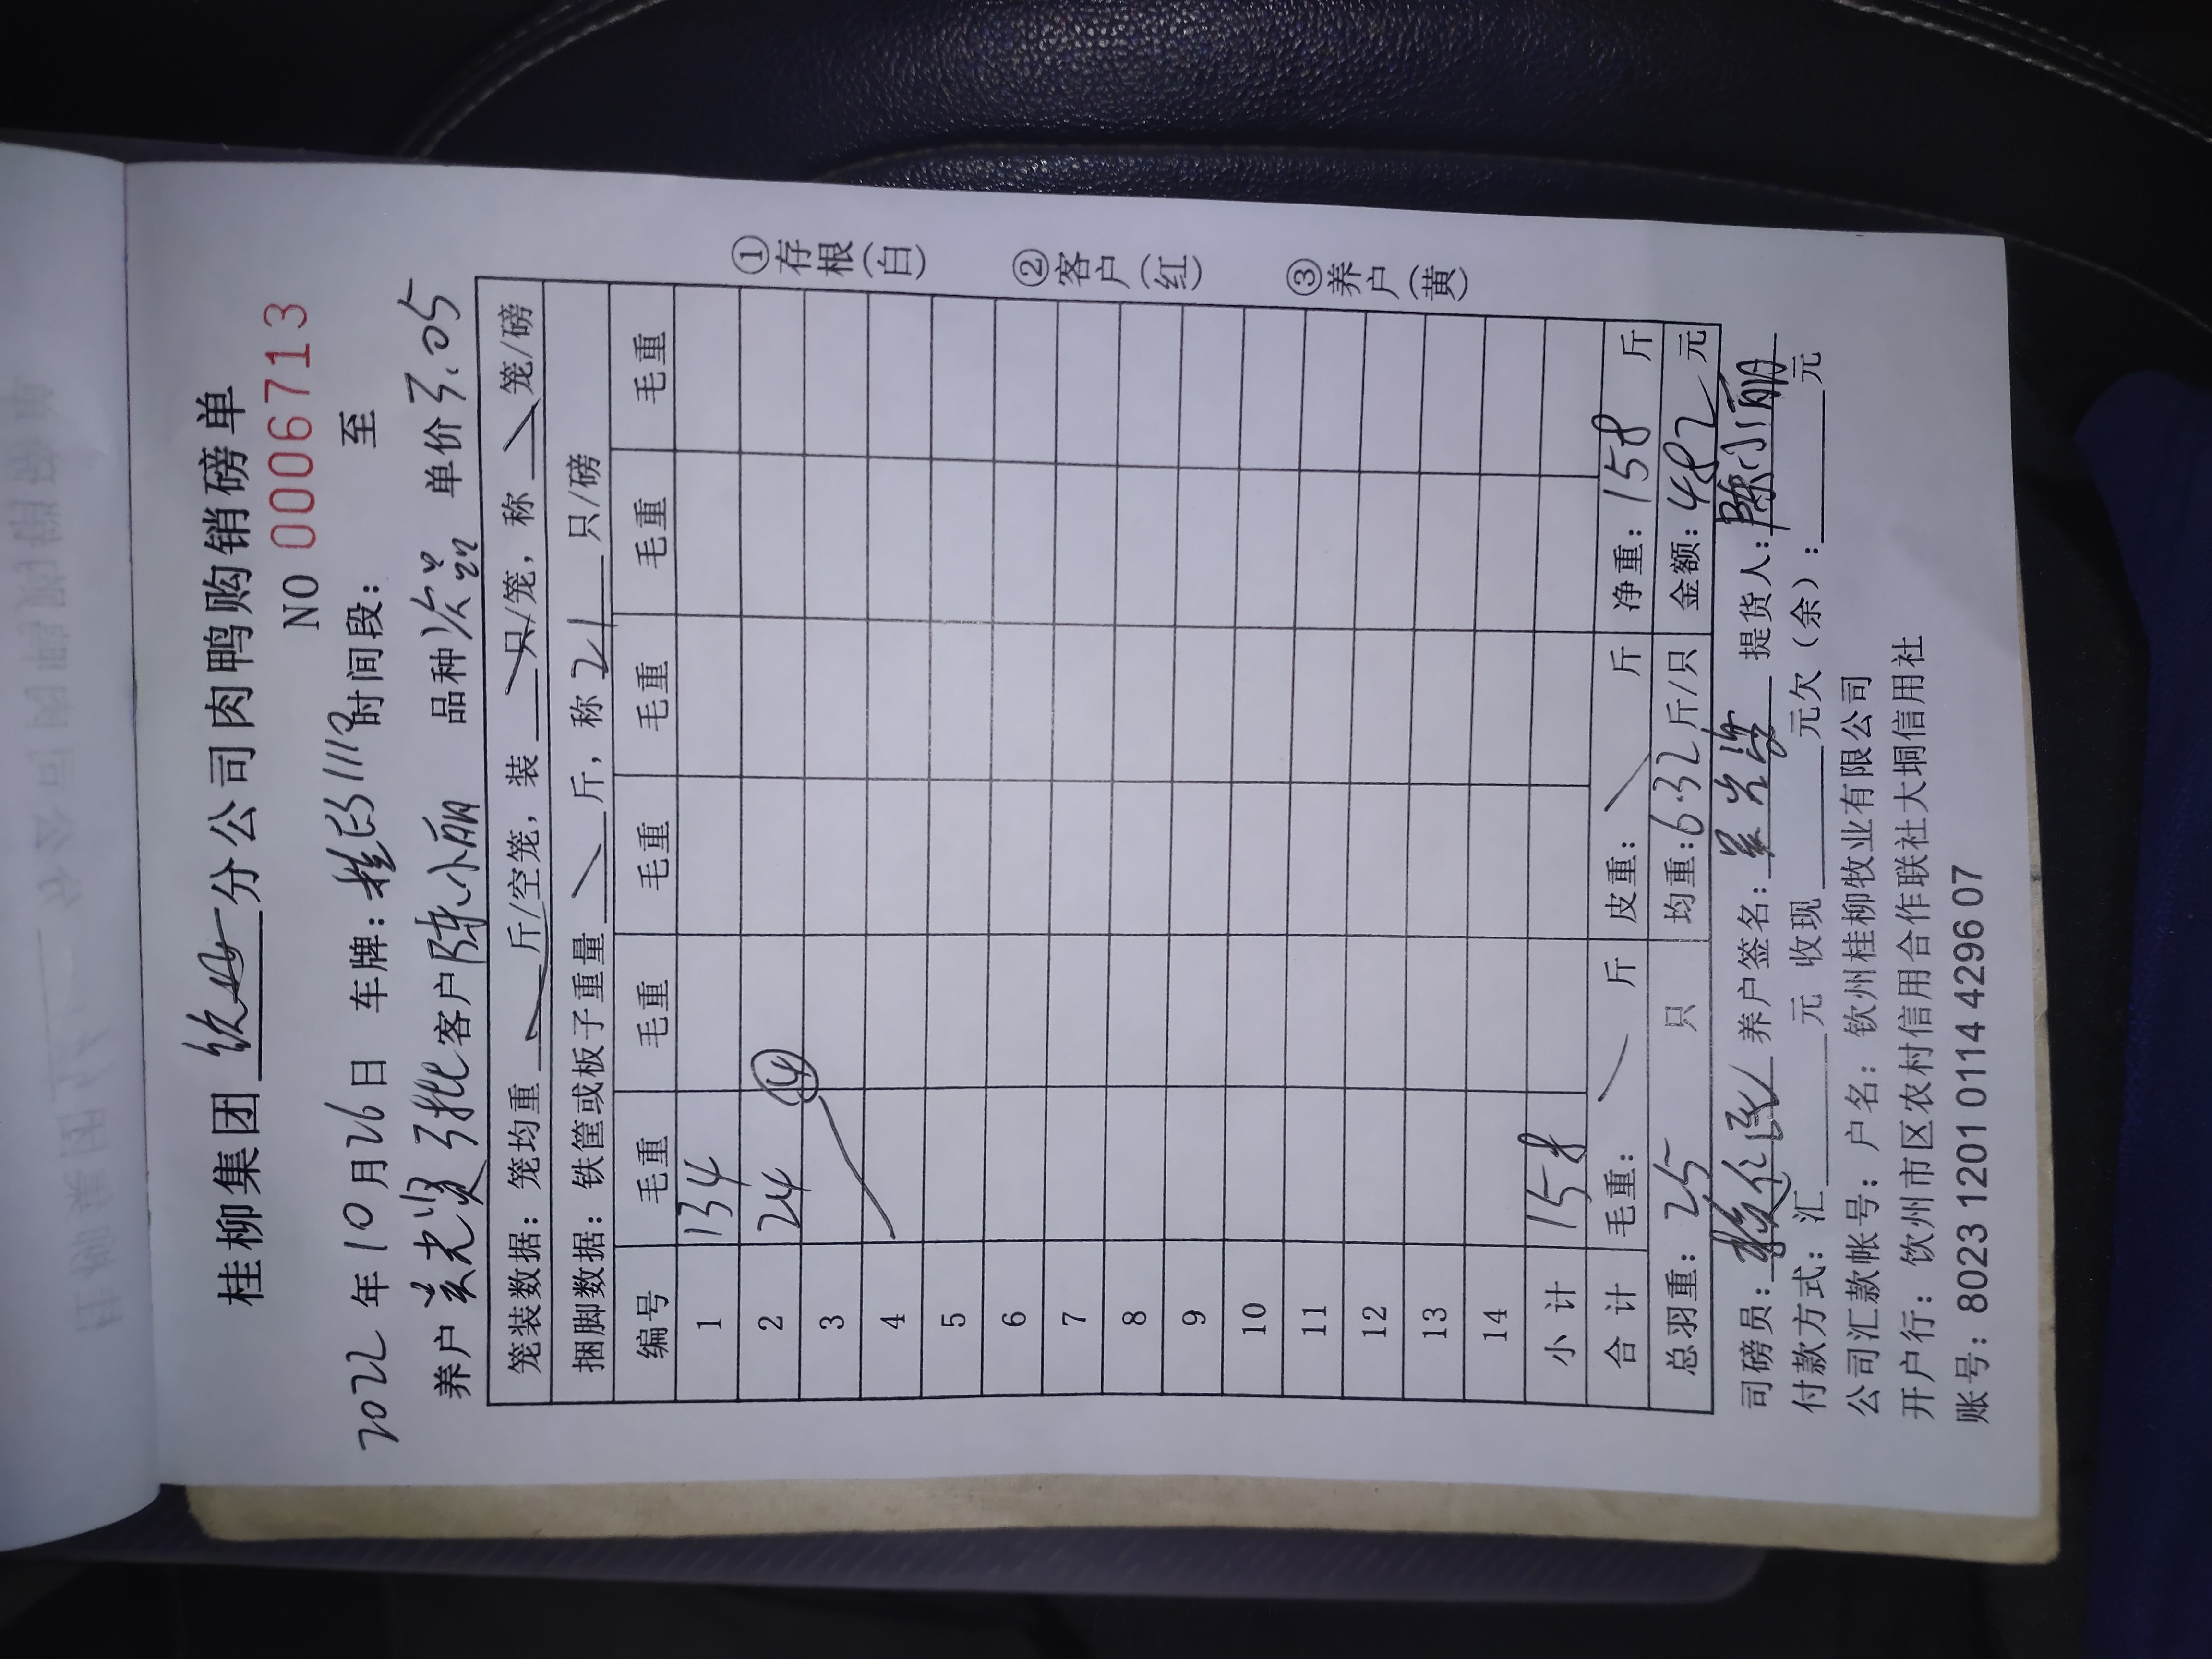 桂柳集团 钦州 分公司肉鸭购销磅单
NO 0006713
2022 年 10 月 26 日 车牌： 时间段： 至
养户 客户 陈小丽 品种 次品 单价 3.05
笼装数据：笼均重 斤/空笼，装 只/笼，称 笼/磅
捆脚数据：铁筐或板子重量 斤，称 21 只/磅
编号 毛重 毛重 毛重 毛重 毛重 毛重
1 134
2 24 ④
3
4
5
6
7
8
9
10
11
12
13
14
小 计 158
合 计 毛重： 斤 皮重： 斤 净重：158 斤
总羽重：25 只 均重：6.32 斤/只 金额：482 元
司磅员： 养户签名： 提货人：陈小丽
付款方式：汇 元 收现 元欠（余）： 元
公司汇款帐号：户名：钦州桂柳牧业有限公司
开户行：钦州市区农村信用合作联社大垌信用社
账号：8023 1201 0114 4296 07
①存根(白)
②客户(红)
③养户(黄)